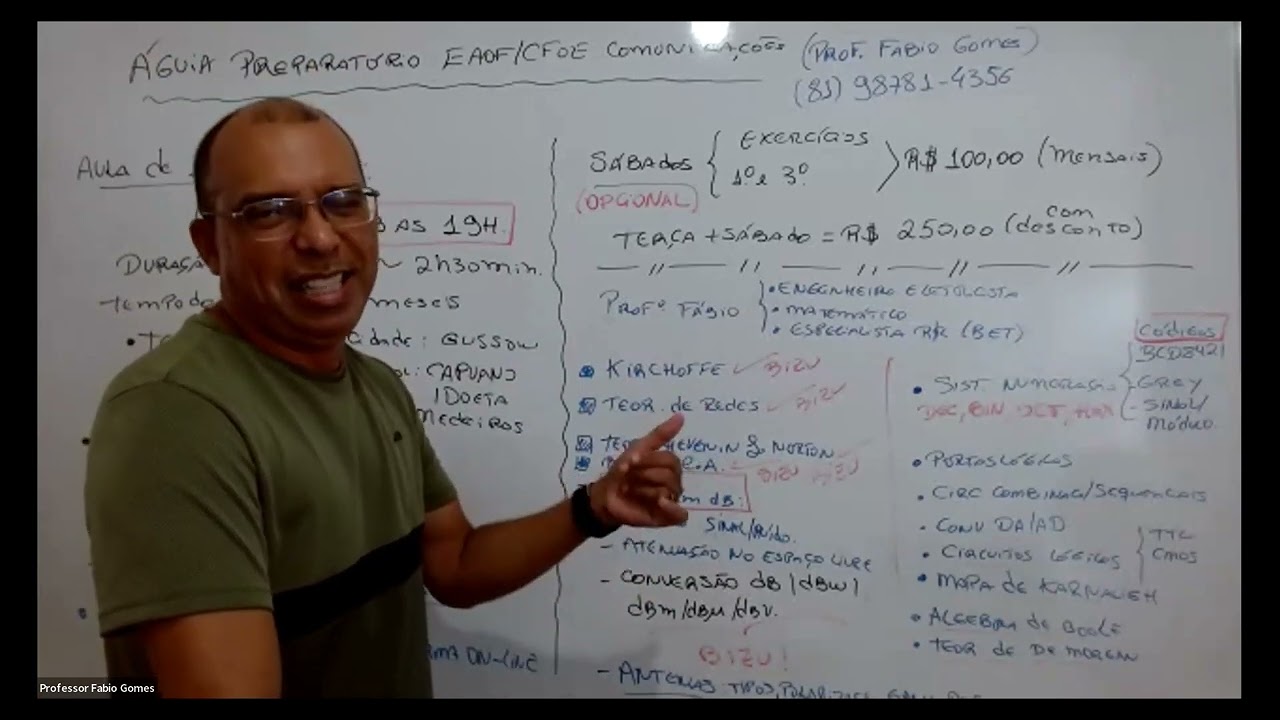 ÁGUIA PREPARATÓRIO EAOF/CFOE COMUNICAÇÕES (PROF. FABIO GOMES)
(81) 98781-4356
AULA DE
AS 19H.
DURAÇÃ ~ 2h30min.
TEMPO DE MESES
cidade: GUSSOW
CAPUANO
IDOETA
MEDEIROS
RMA ON-LINE
SÁBADOS { EXERCÍCIOS
1º e 3º
R$ 100,00 (MENSAIS)
(OPCIONAL)
TERÇA + SÁBADO = R$ 250,00 (com desconto)
PROFº FÁBIO
• ENGENHEIRO ELETRICISTA
• MATEMÁTICO
• ESPECIALISTA R/R (BET)
KIRCHOFFE ✓ BIZU
TEOR. de REDES ✓ BIZU
THEVENIN & NORTON
C.A. BIZU
em dB:
SINAL/RUÍDO.
- ATENUAÇÃO NO ESPAÇO LIVRE
- CONVERSÃO dB/dBW/
dBm/dBu/dBV.
BIZU!
- ANTENAS: TIPOS,
CÓDIGOS
BCD8421
• SIST. NUMERAÇÃO - GREY
DEC, BIN, OCT, HEX
- SINAL/
MÓDULO.
• PORTAS LÓGICAS
• CIRC COMBINAC/SEQUENCIAIS
• CONV DA/AD
• CIRCUITOS LÓGICOS } TTL
CMOS
• MAPA DE KARNAUGH
• ALGEBRA de BOOLE
• TEOR de DE MORGAN
Professor Fabio Gomes